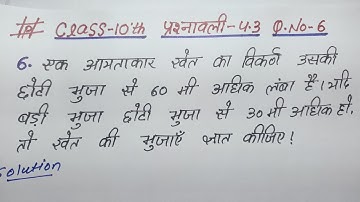 # Class-10th प्रश्नावली-4.3 Q.No-6
6. एक आयताकार खेत का विकर्ण उसकी
छोटी भुजा से 60 मी अधिक लंबा है। यदि
बड़ी भुजा छोटी भुजा से 30 मी अधिक हो,
तो खेत की भुजाएँ ज्ञात कीजिए!
Solution